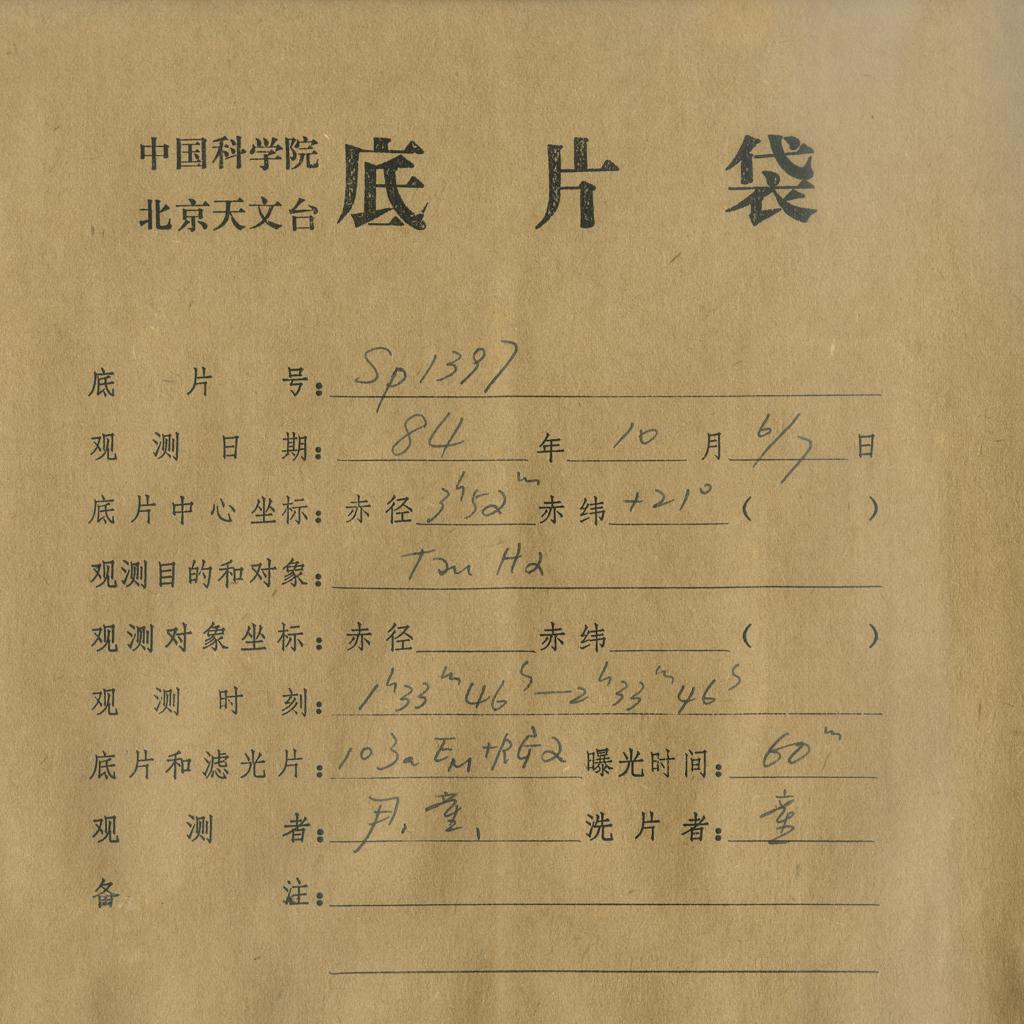 中国科学院
北京天文台
底片袋
底片号：Sp1397
观测日期：84年10月6/7日
底片中心坐标：赤径3h52m赤纬+21°（ ）
观测目的和对象：Tau Hα
观测对象坐标：赤径 赤纬 （ ）
观测时刻：1h33m46s—2h33m46s
底片和滤光片：103a EM+RG2 曝光时间：60m
观测者：尹、童、 洗片者：童
备注：